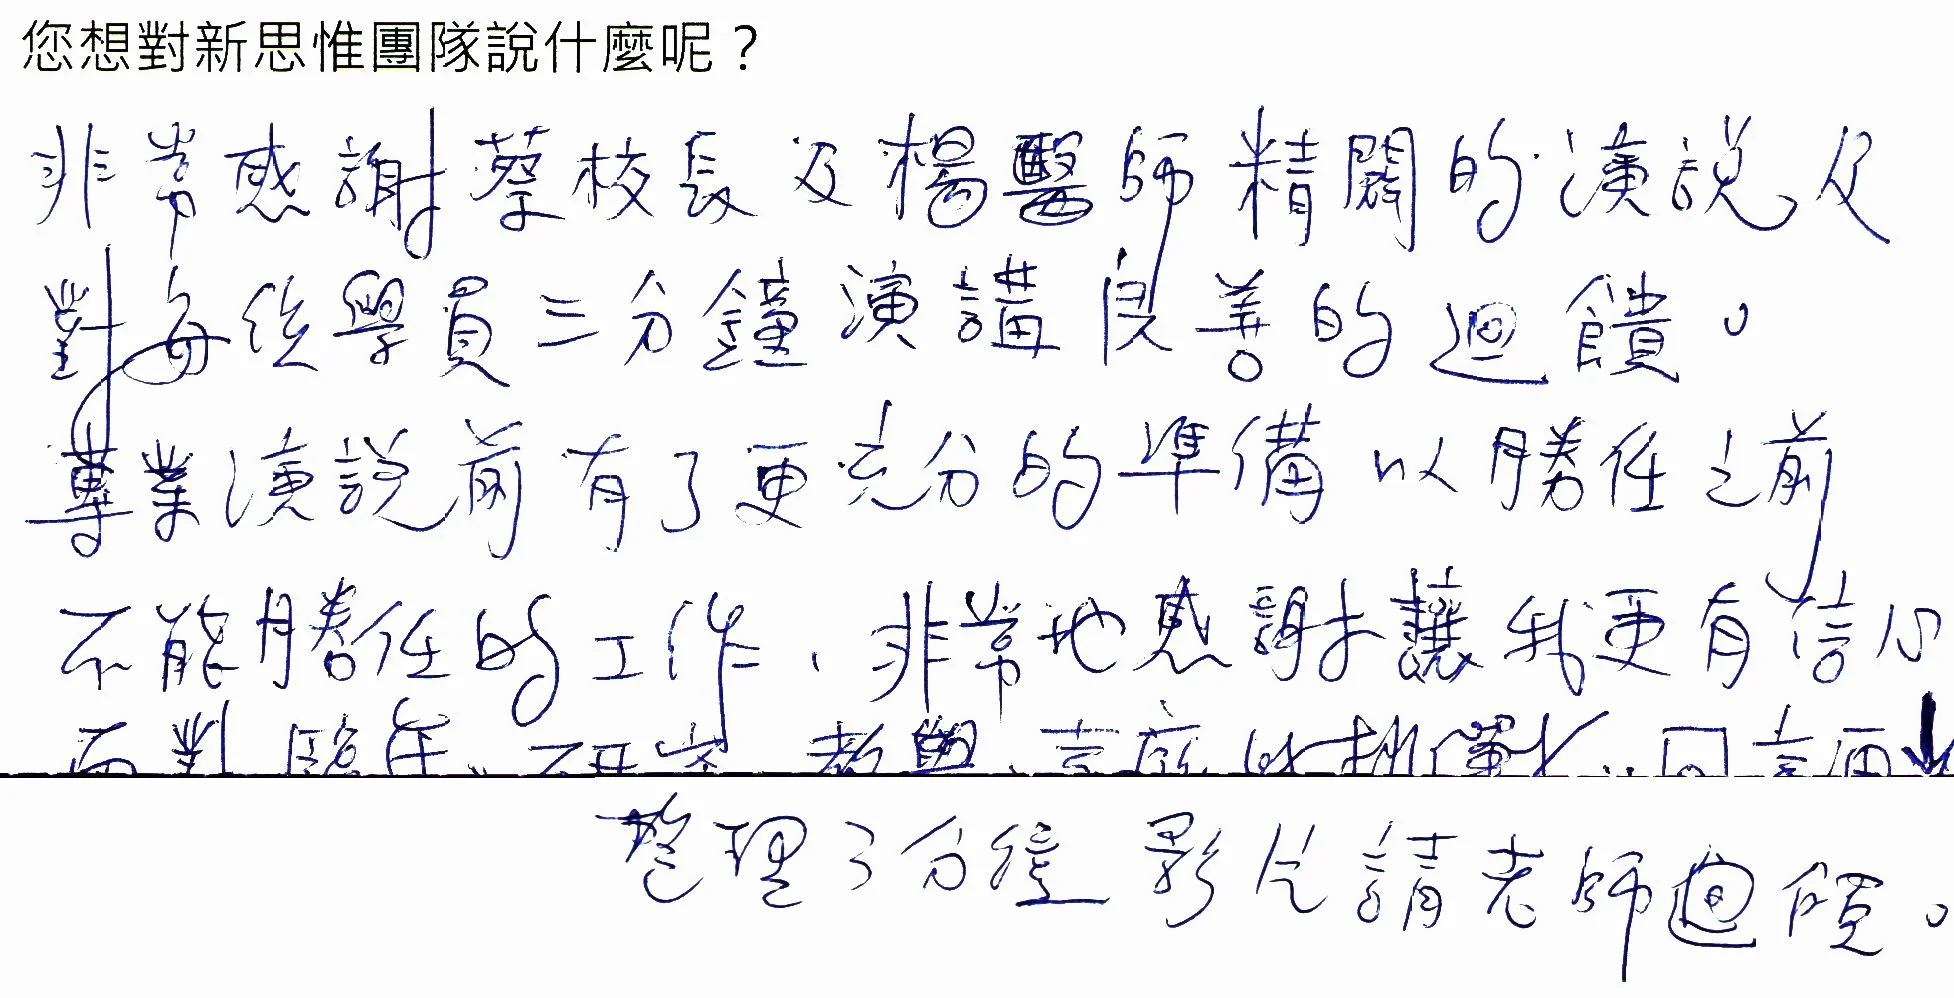 您想對新思惟團隊說什麼呢？
非常感謝蔡校長及楊醫師精闢的演說及
對每位學員三分鐘演講良善的迴饋。
專業演說前有了更充分的準備以勝任之前
不能勝任的工作，非常地感謝讓我更有信心
面對臨床、研究、教學、的挑戰
整理3分鐘影片請老師迴饋。